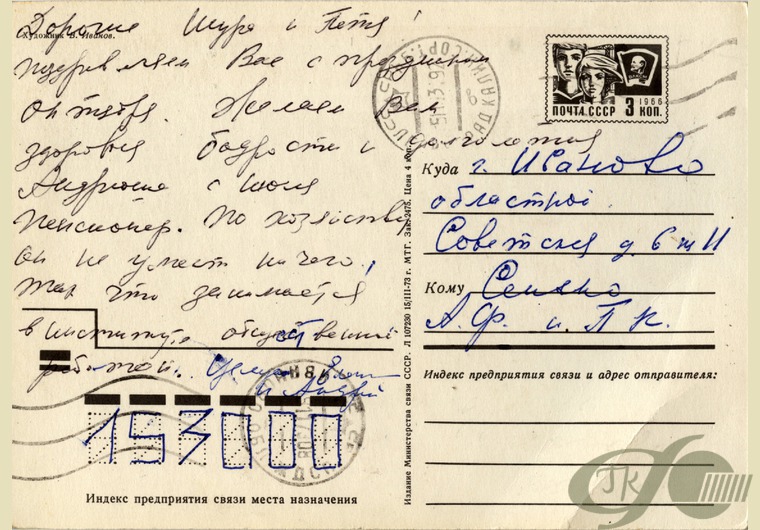 Дорогие Шура и Петя!
Художник В. Иванов.
поздравляем Вас с праздником
октября. Желаем Вам
здоровья бодрости и долголетия
Андрюша с июля
пенсионер. По хозяйству
он не умеет ничего,
так что занимается
в институте общественной
работой. Целуем
и Андрей
ПОЧТА СССР 3 КОП.
1966
Куда г. Иваново
областной
Советская д. 6
Кому
А. Ф. и П. К.
Индекс предприятия связи и адрес отправителя:
Издание Министерства связи СССР. Л 107230 15/111-73 г. МТГ. Зак. 2475. Цена 4 коп.
153000
Индекс предприятия связи места назначения
ГК